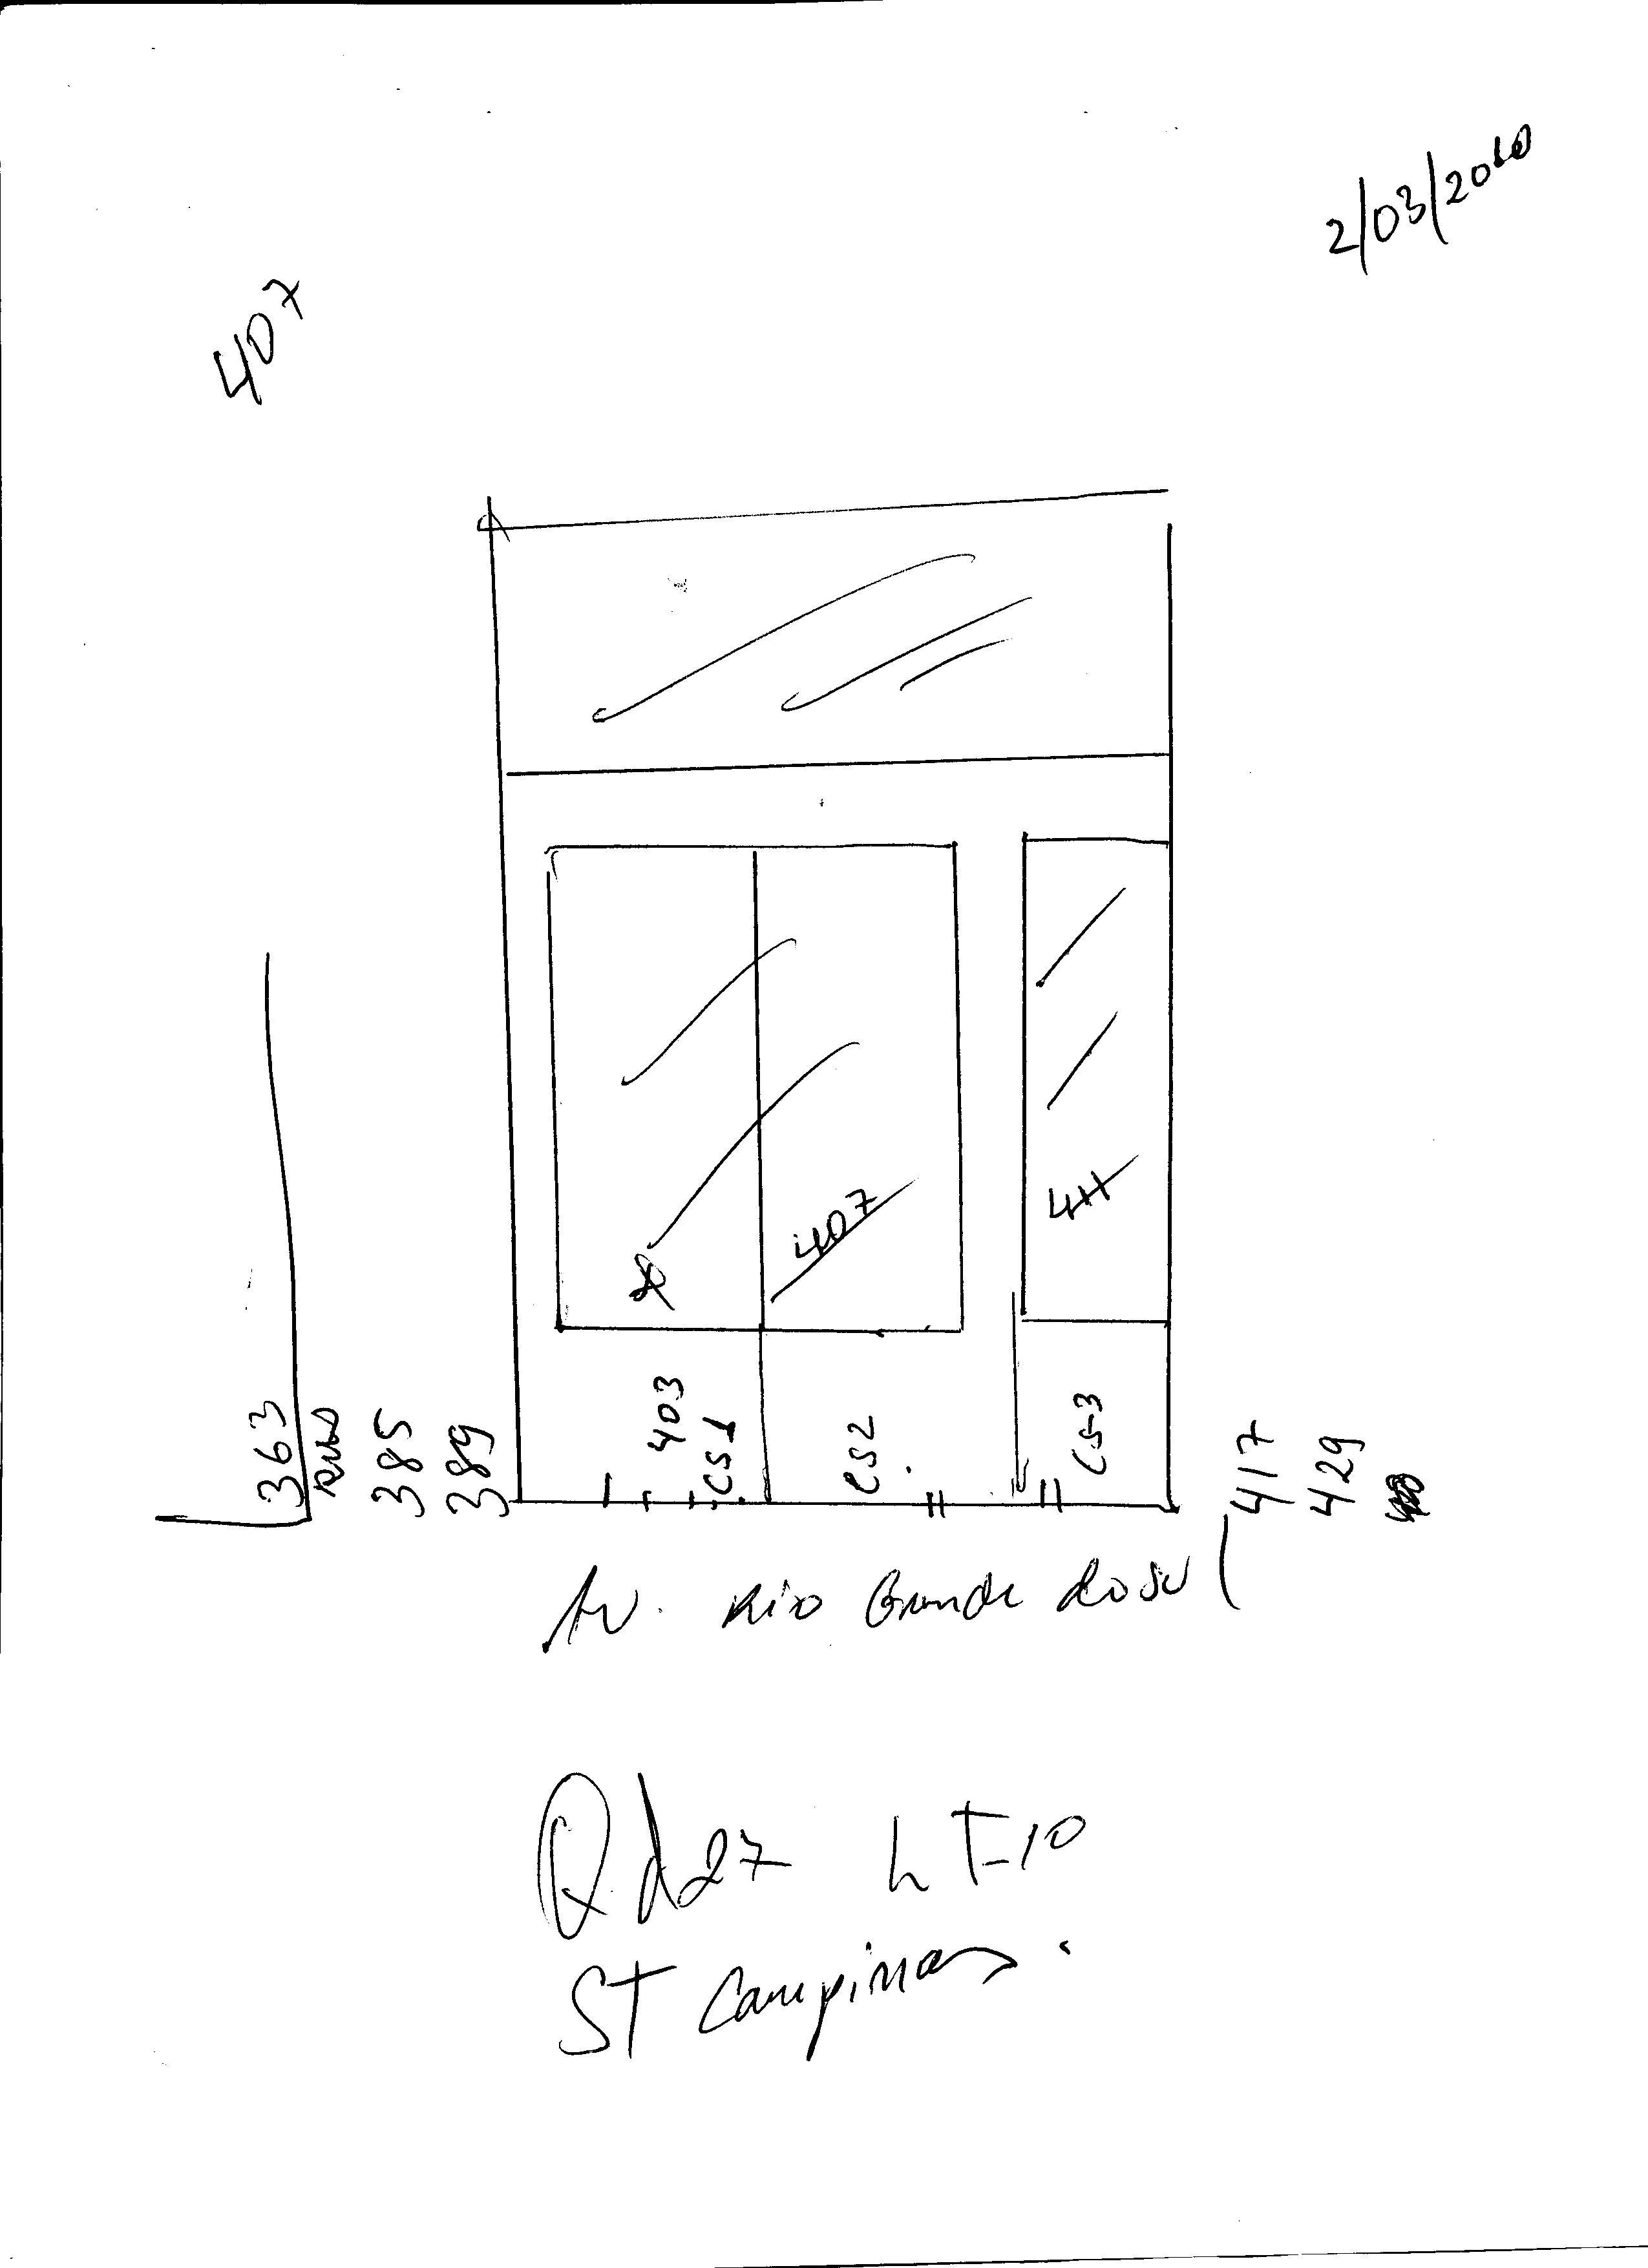 2/03/2010
407
407
411
363
385
389
403
CS1
CS2
CS-3
417
429
Av. Rio Grande do Sul
Qd 27 LT-10
ST Campinas.